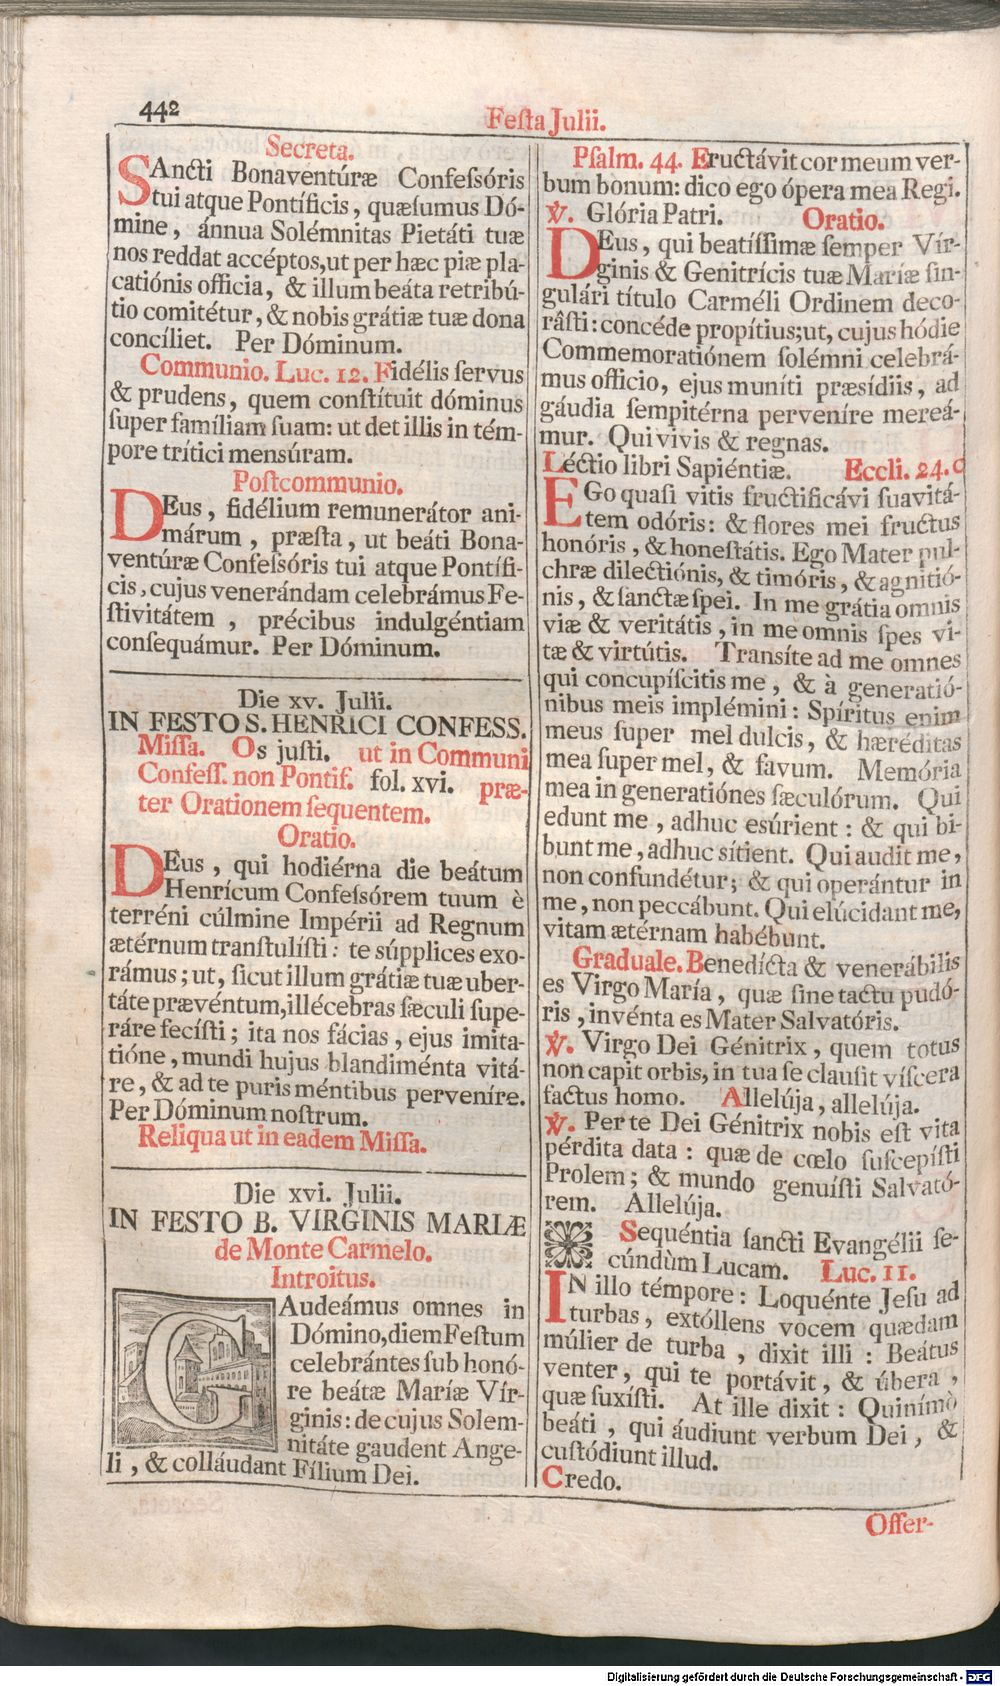 442
Feſta Julii.
Secreta.
SAncti Bonaventúræ Confeſsóris
tui atque Pontíficis, quæſumus Dó-
mine, ánnua Solémnitas Pietáti tuæ
nos reddat accéptos, ut per hæc piæ pla-
catiónis officia, & illum beáta retribú-
tio comitétur, & nobis grátiæ tuæ dona
concíliet. Per Dóminum.
Communio. Luc. 12. Fidélis ſervus
& prudens, quem conſtítuit dóminus
ſuper famíliam ſuam: ut det illis in tém-
pore trítici menſúram.
Poſtcommunio.
DEus, fidélium remunerátor ani-
márum, præſta, ut beáti Bona-
ventúræ Confeſsóris tui atque Pontífi-
cis, cujus venerándam celebrámus Fe-
ſtivitátem, précibus indulgéntiam
conſequámur. Per Dóminum.
Die xv. Julii.
IN FESTO S. HENRICI CONFESS.
Miſſa. Os juſti. ut in Communi
Confeſſ. non Pontif. fol. xvi. præ-
ter Orationem ſequentem.
Oratio.
DEus, qui hodiérna die beátum
Henrícum Confeſsórem tuum è
terréni cúlmine Impérii ad Regnum
ætérnum tranſtulíſti: te súpplices exo-
rámus; ut, ſicut illum grátiæ tuæ uber-
táte prævéntum, illécebras ſæculi ſupe-
ráre fecíſti; ita nos fácias, ejus imita-
tióne, mundi hujus blandiménta vitá-
re, & ad te puris méntibus perveníre.
Per Dóminum noſtrum.
Reliqua ut in eadem Miſſa.
Die xvi. Julii.
IN FESTO B. VIRGINIS MARIÆ
de Monte Carmelo.
Introitus.
GAudeámus omnes in
Dómino, diem Feſtum
celebrántes ſub honó-
re beátæ Maríæ Vír-
ginis: de cujus Solem-
nitáte gaudent Ange-
li, & colláudant Fílium Dei.
Pſalm. 44. Eructávit cor meum ver-
bum bonum: dico ego ópera mea Regi.
℣. Glória Patri. Oratio.
DEus, qui beatíſſimæ ſemper Vír-
ginis & Genitrícis tuæ Maríæ ſin-
gulári título Carméli Ordinem deco-
râſti: concéde propítius; ut, cujus hódie
Commemoratiónem ſolémni celebrá-
mus officio, ejus muníti præsídiis, ad
gáudia ſempitérna perveníre mereá-
mur. Qui vivis & regnas.
Léctio libri Sapiéntiæ. Eccli. 24. c
EGo quaſi vitis fructificávi ſuavitá-
tem odóris: & flores mei fructus
honóris, & honeſtátis. Ego Mater pul-
chræ dilectiónis, & timóris, & agnitió-
nis, & ſanctæ ſpei. In me grátia omnis
viæ & veritátis, in me omnis ſpes vi-
tæ & virtútis. Transíte ad me omnes
qui concupíſcitis me, & à generatió-
nibus meis implémini: Spíritus enim
meus ſuper mel dulcis, & hæréditas
mea ſuper mel, & favum. Memória
mea in generatiónes ſæculórum. Qui
edunt me, adhuc esúrient: & qui bi-
bunt me, adhuc sítient. Qui audit me,
non confundétur; & qui operántur in
me, non peccábunt. Qui elúcidant me,
vitam ætérnam habébunt.
Graduale. Benedícta & venerábilis
es Virgo María, quæ ſine tactu pudó-
ris, invénta es Mater Salvatóris.
℣. Virgo Dei Génitrix, quem totus
non capit orbis, in tua ſe clauſit víſcera
factus homo. Allelúja, allelúja.
℣. Per te Dei Génitrix nobis eſt vita
pérdita data: quæ de cœlo ſuſcepíſti
Prolem; & mundo genuíſti Salvató-
rem. Allelúja.
Sequéntia ſancti Evangélii ſe-
cúndùm Lucam. Luc. 11.
IN illo témpore: Loquénte Jeſu ad
turbas, extóllens vocem quædam
múlier de turba, dixit illi: Beátus
venter, qui te portávit, & úbera,
quæ ſuxíſti. At ille dixit: Quinímò
beáti, qui áudiunt verbum Dei, &
cuſtódiunt illud.
Credo.
Offer-
Digitalisierung gefördert durch die Deutsche Forschungsgemeinschaft - DFG